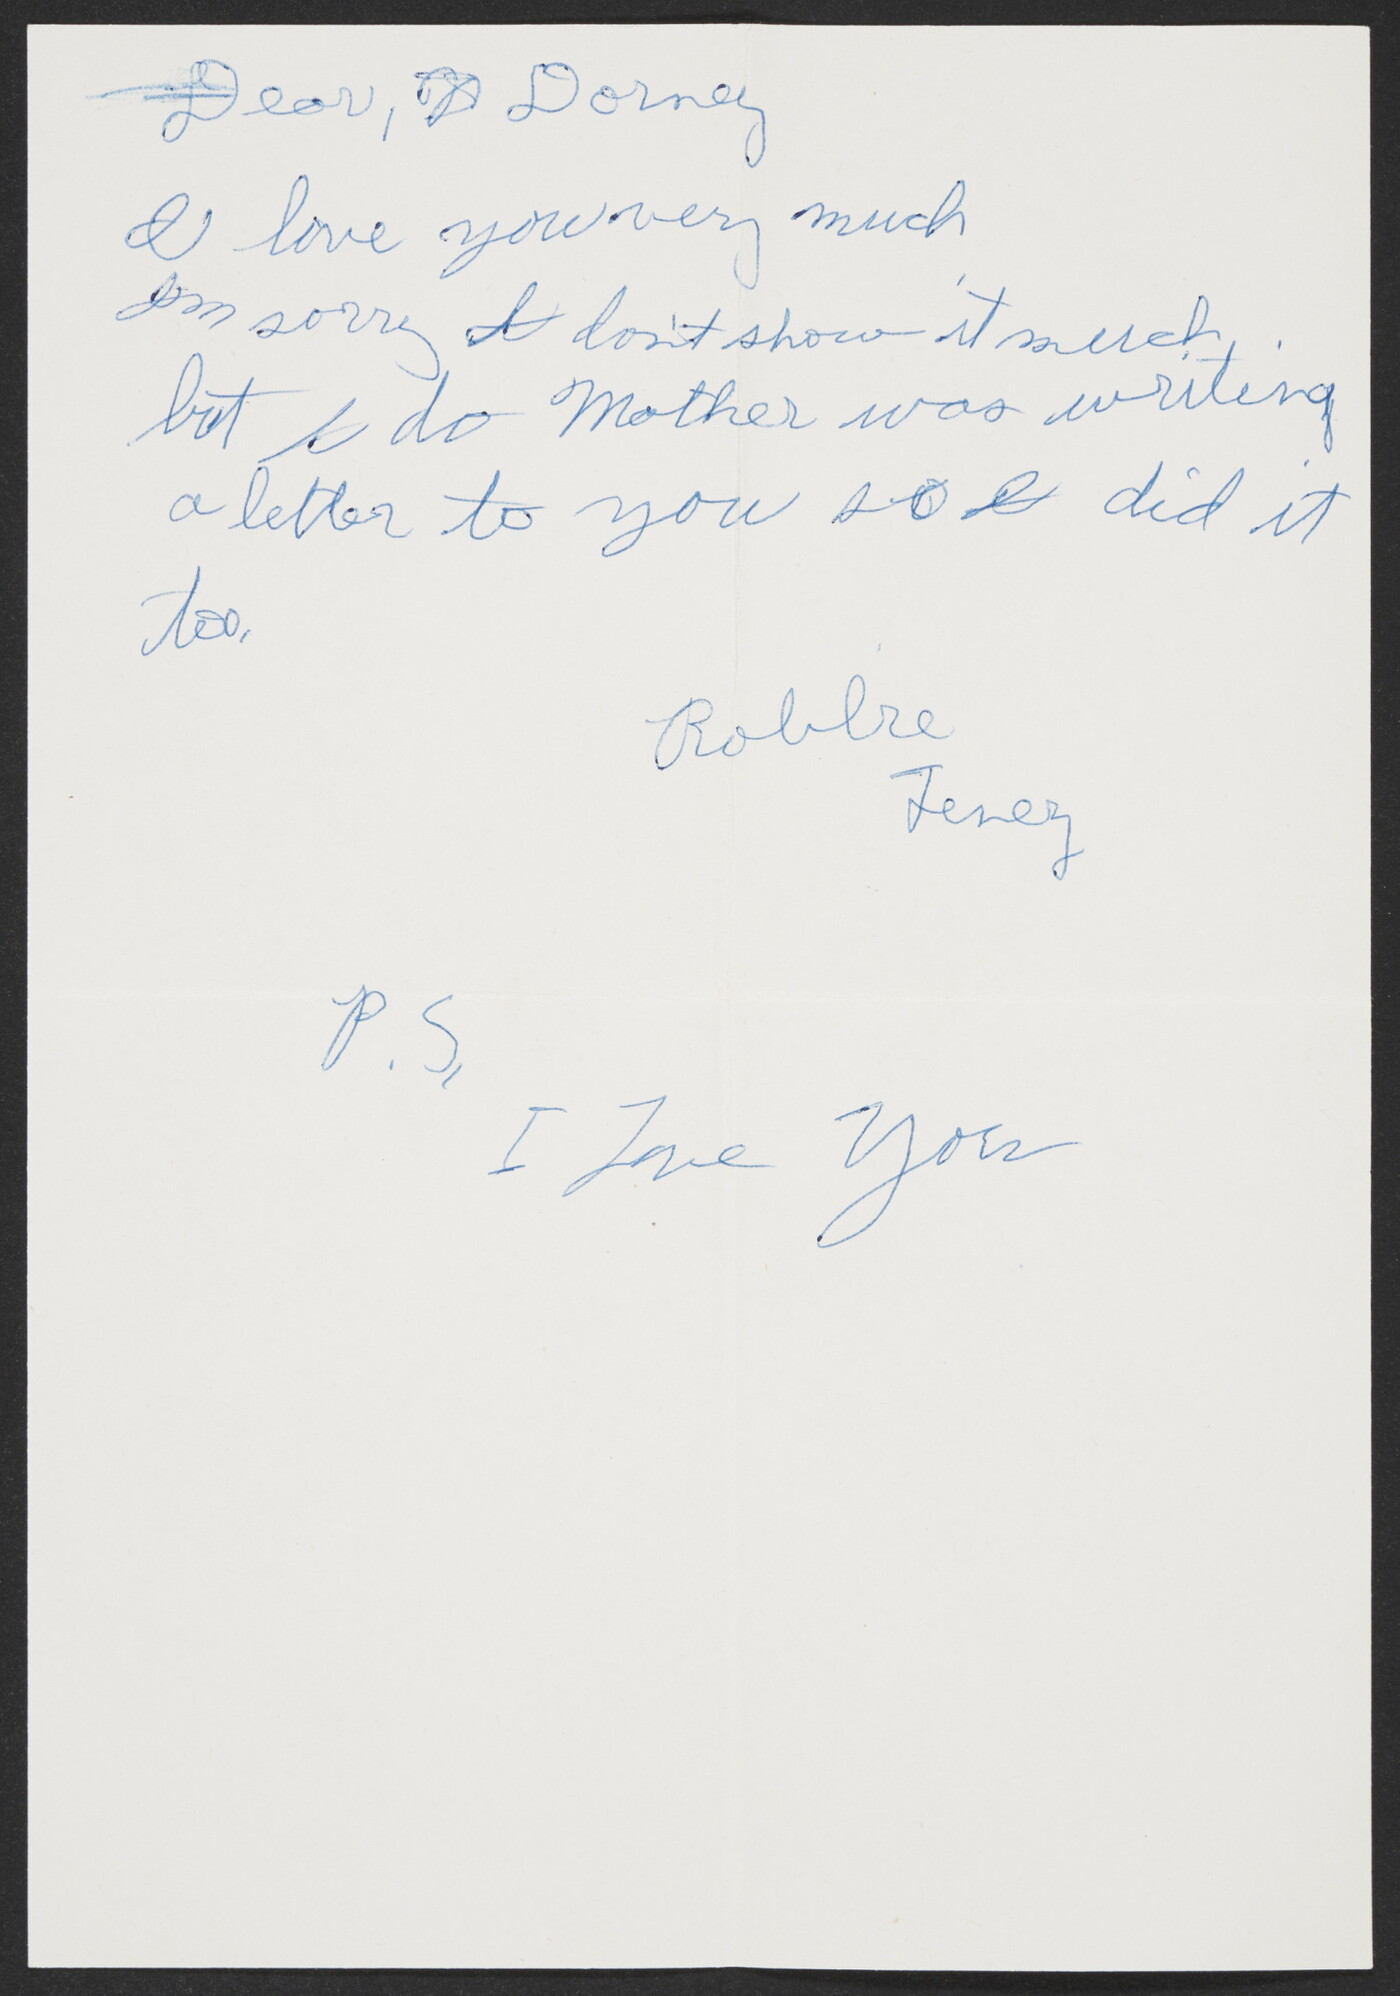 Dear, Dorney
I love you very much
Im sorry I don't show it much.
but I do Mother was writing
a letter to you so I did it
too.
Robbie
Feney
P.S.
I Love You